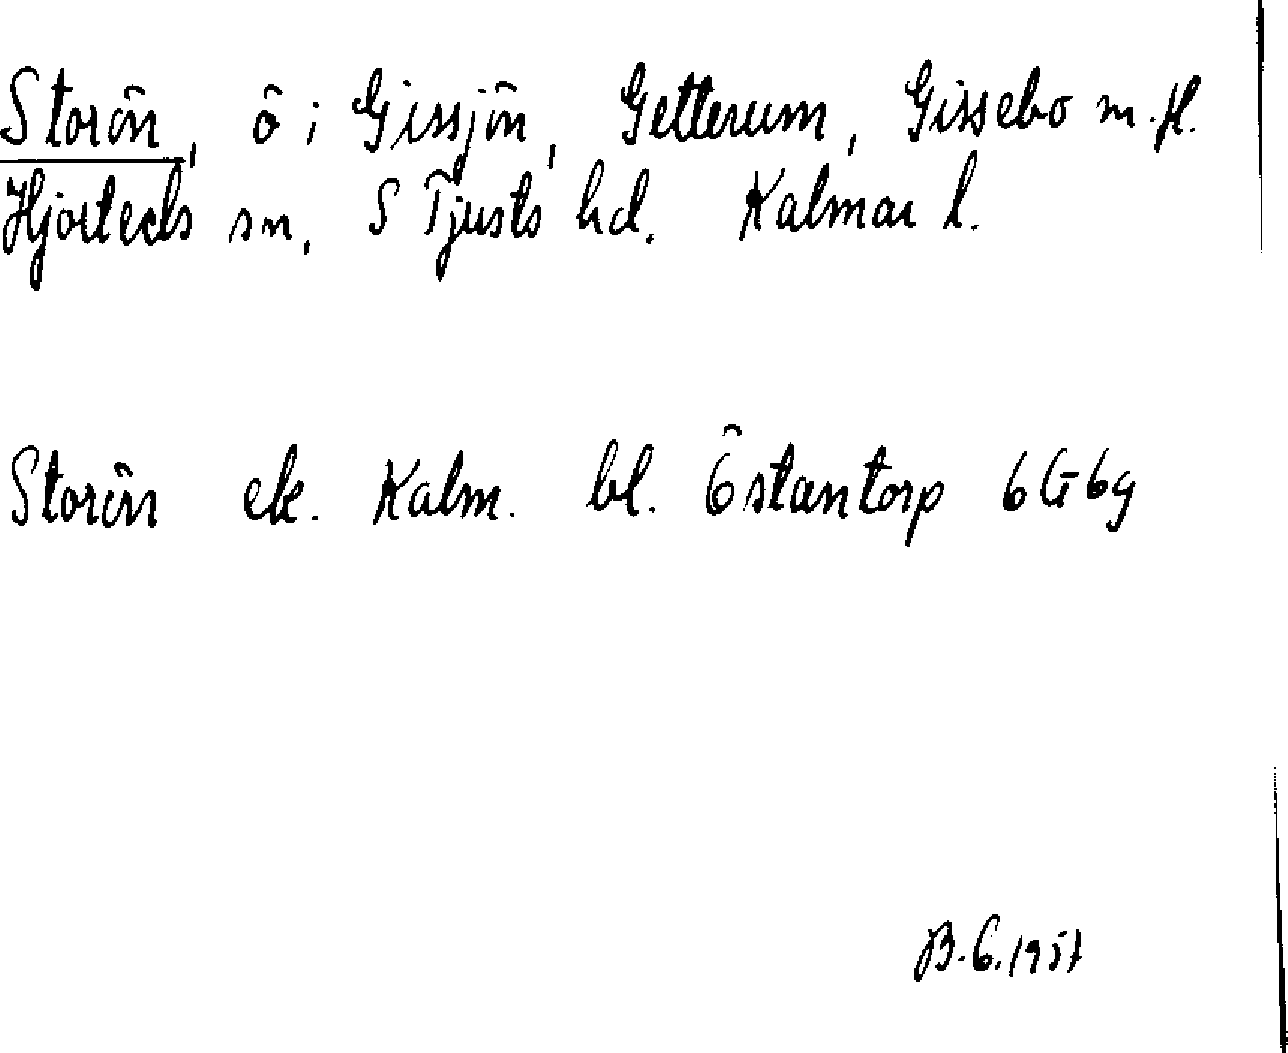 Storön, ö i Gissjön, Getterum, Gissebo m.fl.
Hjorteds sn, S Tjusts hd. Kalmar l.
Storön ek. Kalm. bl. Östantorp 6G6g
B.G.1957